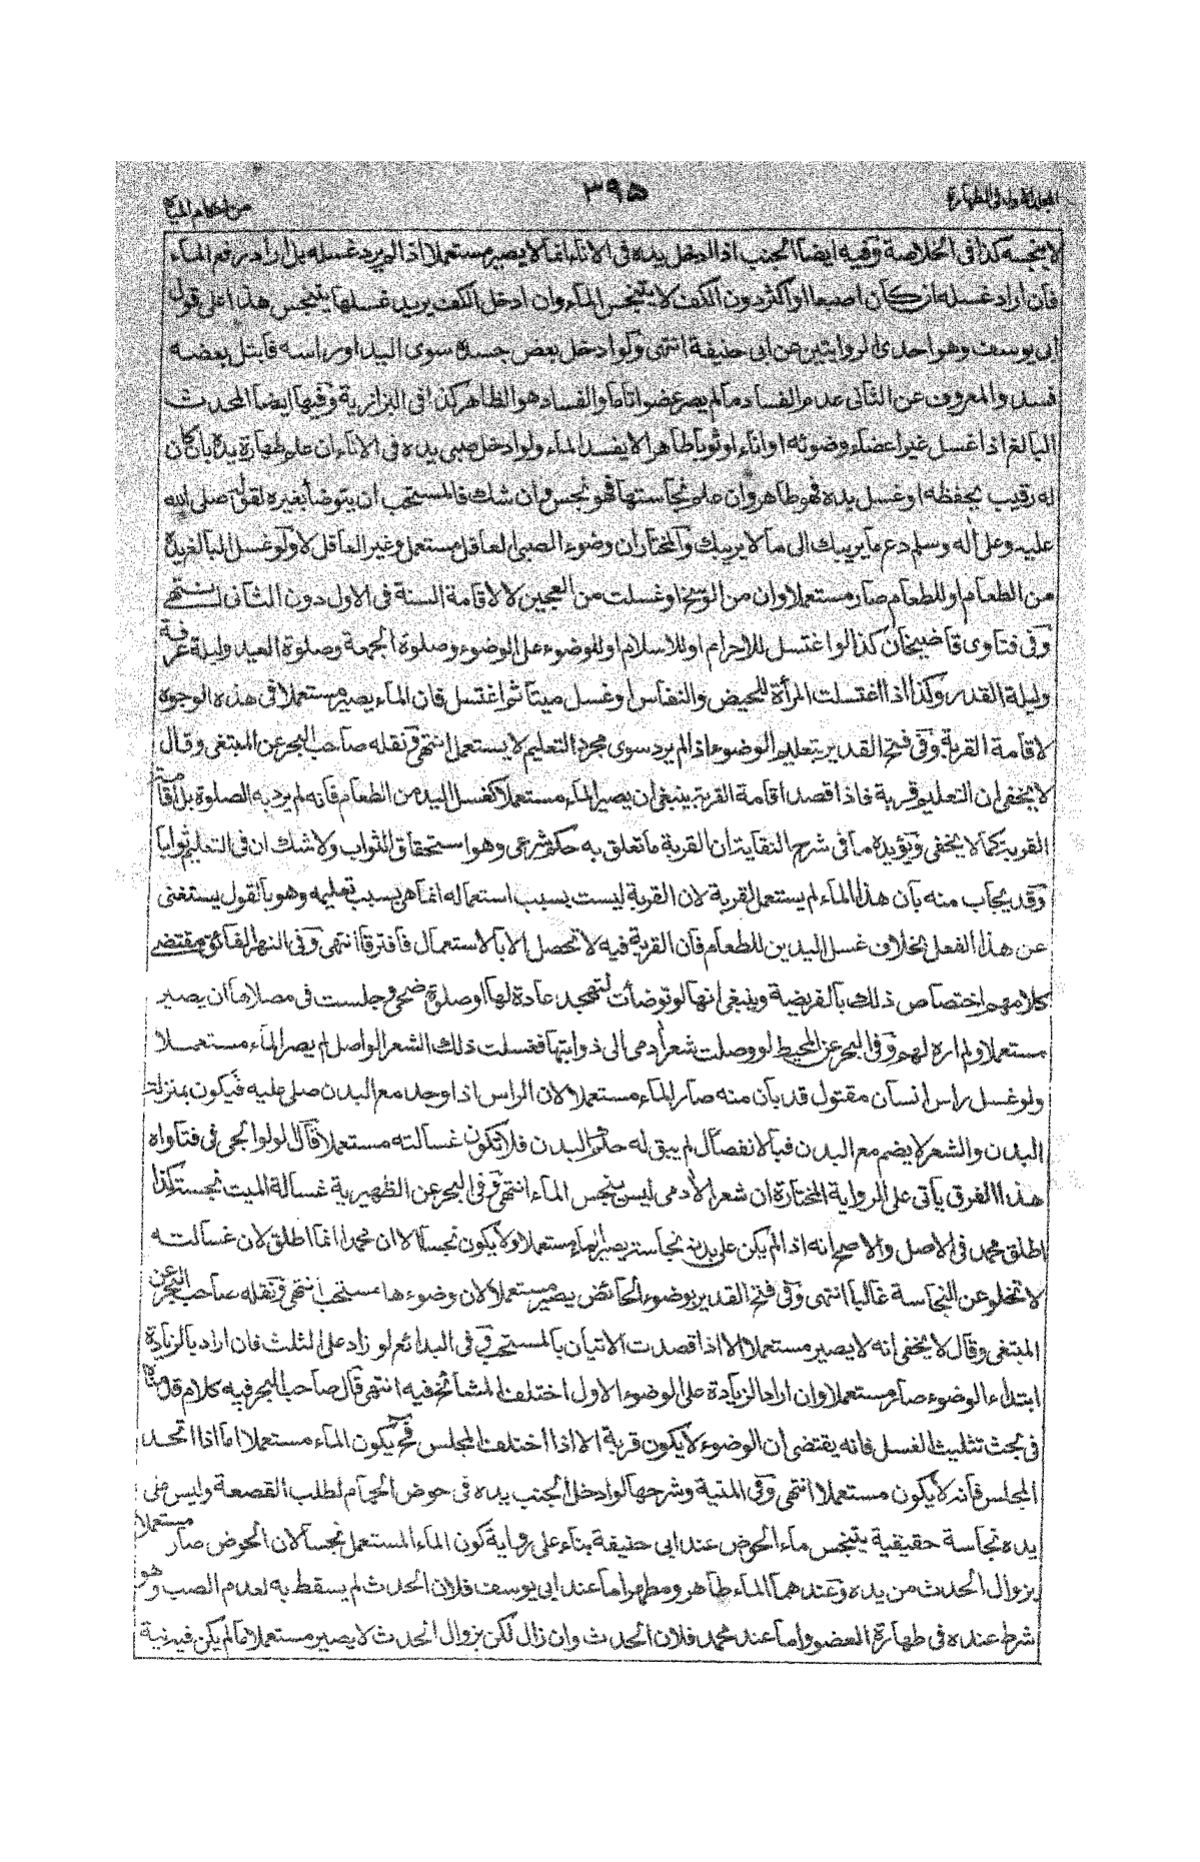 المجلد الاول فى الطهارة ٣٩٥ من احكام المياه
لا ينجسه كذا فى الخلاصة وفيه ايضا الجنب اذا ادخل يده فى الاناء انما لا يصير مستعملا اذا لم يرد غسله بل اراد رفع الماء
فان اراد غسله ان كان اصبعا او اكثر دون الكف لا يتنجس الماء وان ادخل الكف يريد غسلها يتنجس هذا على قول
ابى يوسف وهو احدى الروايتين عن ابى حنيفة انتهى ولو ادخل بعض جسده سوى اليد او مر راسه فابتل بعضه
فسد والمعروف عن الثانى عدم الفساد ما لم يصر عضوا تاما والفساد هو الظاهر كذا فى البزازية وفيها ايضا المحدث
البالغ اذا غسل غير اعضاء وضوئه او اناء او ثوبا طاهرا لا يفسد الماء ولو ادخل صبى يده فى الاناء ان علم طهارة يده بان كان
له رقيب يحفظه او غسل يده فهو طاهر وان علم نجاستها فهو نجس وان شك فالمستحب ان يتوضأ بغيره لقوله صلى الله
عليه وعلى اله وسلم دع ما يريبك الى ما لا يريبك والمختار ان وضوء الصبى العاقل مستعمل وغير العاقل لا ولو غسل البالغ يده
من الطعام او للطعام صار مستعملا وان من الوسخ او غسلت من العجين لا لاقامة السنة فى الاول دون الثانى انتهى
وفى فتاوى قاضيخان كذا لو اغتسل للاحرام او للاسلام او للوضوء على الوضوء وصلوة الجمعة وصلوة العيد وليلة عرفة
وليلة القدر وكذا اذا اغتسلت المرأة للحيض والنفاس او غسل ميتا ثم اغتسل فان الماء يصير مستعملا فى هذه الوجوه
لاقامة القربة وفى فتح القدير بتعليم الوضوء اذا لم يرد سوى مجرد التعليم لا يستعمل انتهى ونقله صاحب البحر عن المبتغى وقال
لا يخفى ان التعليم قربة فاذا قصد اقامة القربة ينبغى ان يصير الماء مستعملا كغسل اليد من الطعام فانه لم يرد به الصلوة بل اقامة
القربة كما لا يخفى ويؤيده ما فى شرح النقاية ان القربة ما تعلق به حكم شرعى وهو استحقاق الثواب ولا شك ان فى التعليم ثوابا
وقد يجاب منه بان هذا الماء لم يستعمل لقربة لان القربة ليست بسبب استعماله انما هى بسبب تعليمه وهو بالقول يستغنى
عن هذا الفعل بخلاف غسل اليدين للطعام فان القربة فيه لا تحصل الا بالاستعمال فافترقا انتهى وفى النهر الفائق ومقتضى
كلامهم اختصاص ذلك بالفريضة وينبغى انها لو توضأت لتهجد عادة لها او صلوة ضحى وجلست فى مصلاها ان يصير
مستعملا ولم اره لهم وفى البحر عن المحيط لو وصلت شعر ادمى الى ذوابتها فغسلت ذلك الشعر الواصل لم يصر الماء مستعملا
ولو غسل راس انسان مقتول قد بان منه صار الماء مستعملا لان الراس اذا وجد مع البدن صلى عليه فيكون بمنزلة
البدن والشعر لا يضم مع البدن فبالانفصال لم يبق له حكم البدن فلا تكون غسالته مستعملا قال لولوالجى فى فتاواه
هذا الفرق يأتى على الرواية المختارة ان شعر الادمى ليس بنجس الماء انتهى وفى البحر عن الظهيرية غسالة الميت نجسة كذا
اطلق محمد فى الاصل والاصح انه اذا لم يكن على بدنه نجاسة يصير الماء مستعملا ولا يكون نجسا الا ان محمدا انما اطلق لان غسالته
لا تخلو عن النجاسة غالبا انتهى وفى فتح القدير بوضوء الحائض يصير مستعملا لان وضوءها مستحب انتهى ونقله صاحب البحر عن
المبتغى وقال لا يخفى انه لا يصير مستعملا الا اذا قصدت الاتيان بالمستحب وفى البدائع لو زاد على الثلث فان اراد بالزيادة
ابتداء الوضوء صار مستعملا وان اراد الزيادة على الوضوء الاول اختلف المشائخ فيه انتهى قال صاحب البحر فيه كلام قدمناه
فى بحث تثليث الغسل فانه يقتضى ان الوضوء لا يكون قربة الا اذا اختلف المجلس فح يكون الماء مستعملا اما اذا اتحد
المجلس فانه لا يكون مستعملا انتهى وفى المنية وشرحها لو ادخل الجنب يده فى حوض الحمام لطلب القصعة وليس على
يده نجاسة حقيقية يتنجس ماء الحوض عند ابى حنيفة بناء على رواية كون الماء المستعمل نجسا لان الحوض صار مستعملا
بزوال الحدث من يده وعندهما الماء طاهر ومطهر اما عند ابى يوسف فلان الحدث لم يسقط به لعدم الصب وهو
شرط عنده فى طهارة العضو واما عند محمد فلان الحدث وان زال لكن بزوال الحدث لا يصير مستعملا ما لم يكن فيه نية